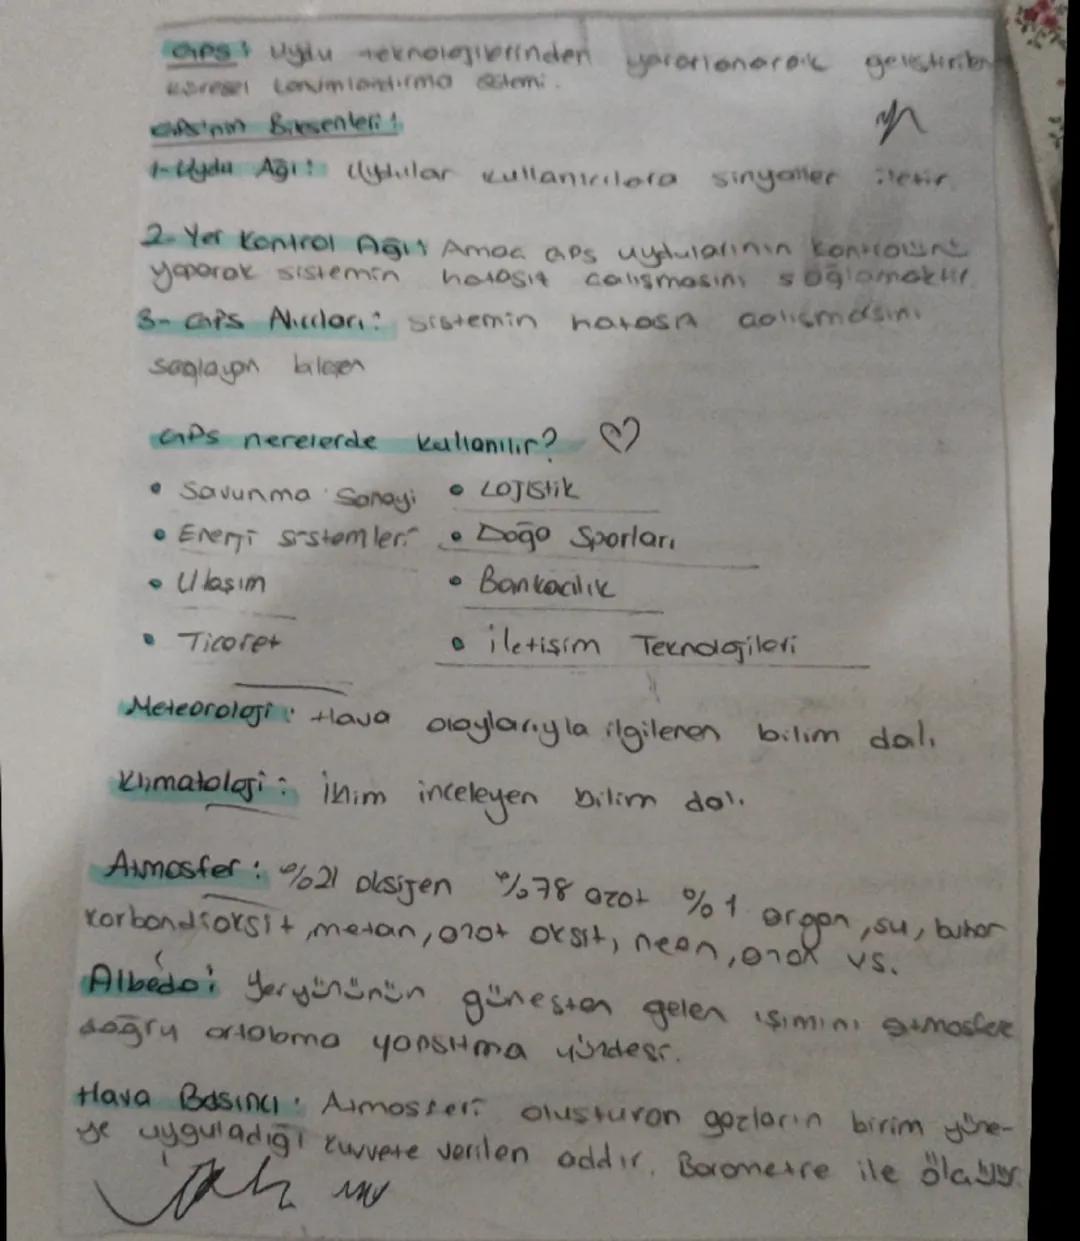 GPS: Uydu teknolojilerinden yararlanarak geliştirilen
küresel konumlandırma sistemi.
GPS'nin Bileşenleri:
1-Uydu Ağı: Uydular kullanıcılara sinyaller iletir
2-Yer Kontrol Ağı: Amaç GPS uydularının kontrolünü
yaparak sistemin hatasız çalışmasını sağlamaktır
3- GPS Alıcıları: sistemin hatasız çalışmasını
sağlayan bileşen
GPS nerelerde kullanılır?
• Savunma Sanayi • Lojistik
• Enerji sistemleri • Doğa Sporları
• Ulaşım • Bankacılık
• Ticaret • iletişim Teknolojileri
Meteoroloji: Hava olaylarıyla ilgilenen bilim dalı
Klimatoloji: İklim inceleyen bilim dalı.
Atmosfer: %21 oksijen %78 azot %1 argon, su, buhar
karbondioksit, metan, azot oksit, neon, ozon vs.
Albedo: Yeryüzünün güneşten gelen ışımını atmosfere
doğru ortalama yansıtma yüzdesi.
Hava Basıncı: Atmosferi oluşturan gazların birim yüze-
ye uyguladığı kuvvete verilen addır. Barometre ile ölçülür.